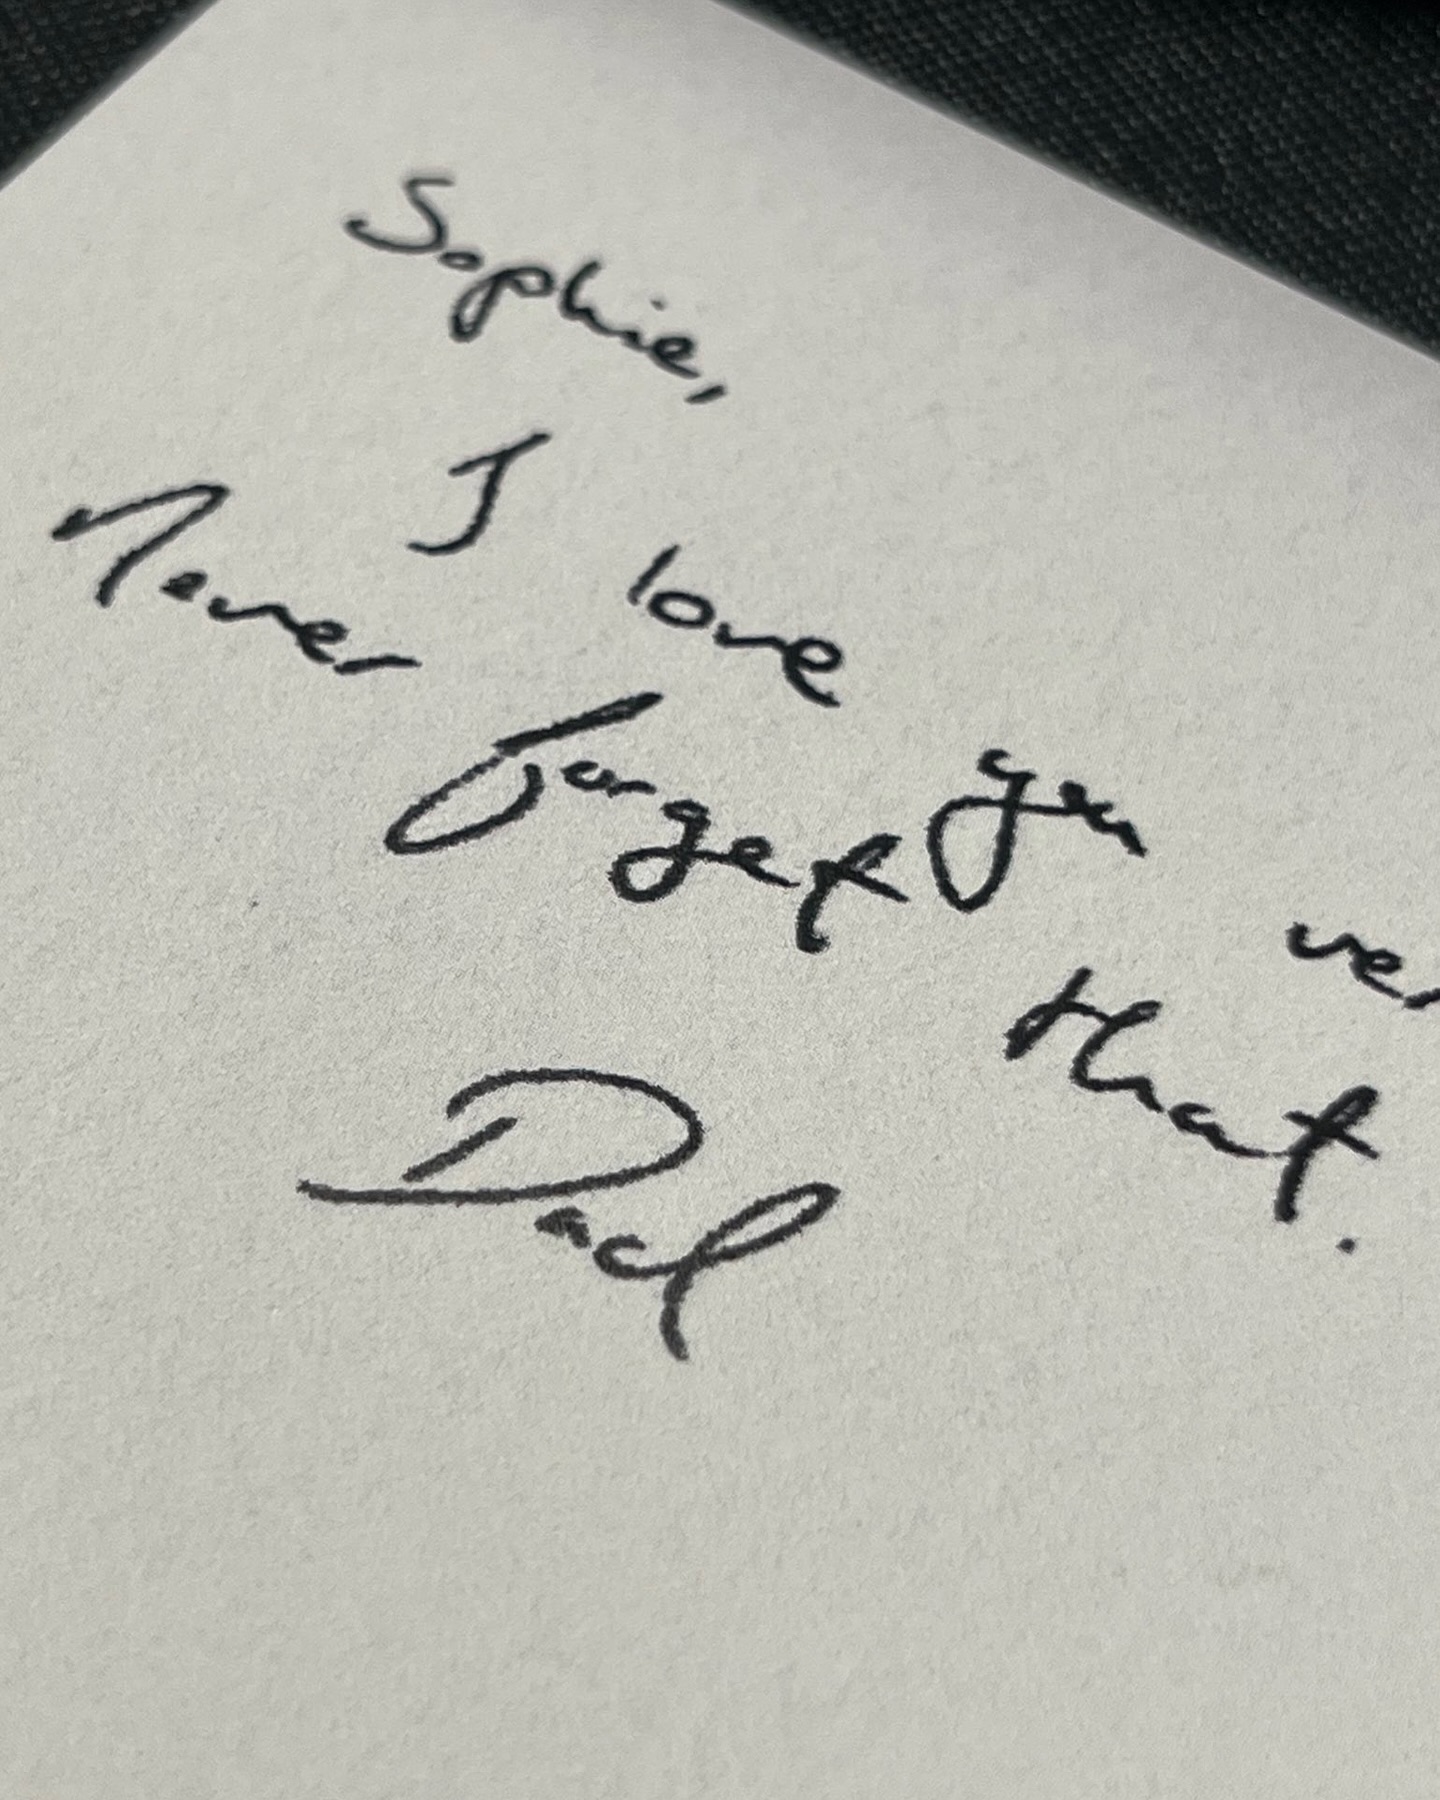 Sophie,
I love you ver
Never forget that.
Dad